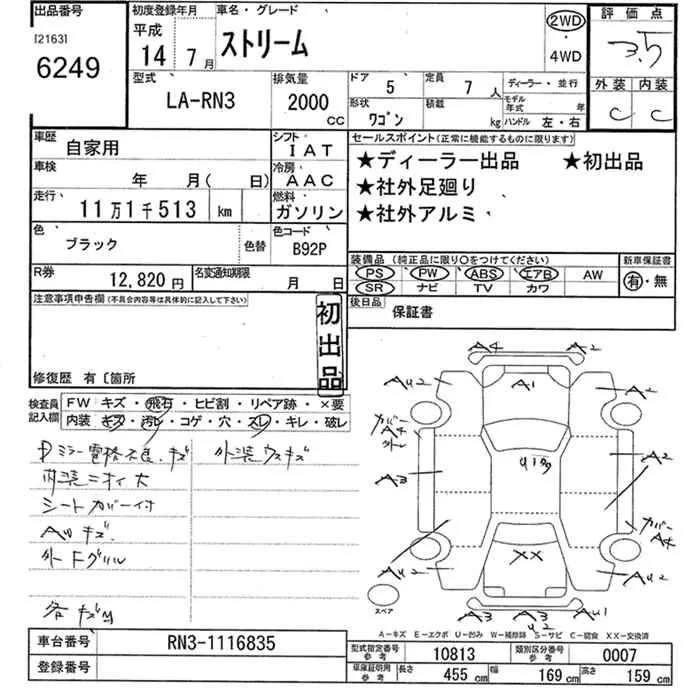 出品番号
[2163]
6249
初度登録年月
平成
14 7月
車名・グレード
ストリーム
2WD
・
4WD
評価点
3.5
外装 内装
C C
型式
LA-RN3
排気量
2000
CC
ドア 5
定員 7 人
ディーラー・並行
形状 ワゴン
積載 kg
モデル年式 年
ハンドル 左・右
車歴 自家用
シフト IAT
車検 年 月( 日)
冷房 AAC
走行 11万1千513 km
燃料 ガソリン
色 ブラック 色替
色コード B92P
R券 12,820円
名変通知期限 月 日
セールスポイント(正常に機能するものに限ります)
★ディーラー出品 ★初出品
★社外足廻り
★社外アルミ
装備品 (純正品に限り○をつけてください)
PS PW ABS エアB AW
SR ナビ TV カワ
新車保証書
有・無
後日品 保証書
注意事項申告欄(不具合内容等は具体的に記入して下さい)
初出品
修復歴 有〔箇所
検査員記入欄
FW キズ・飛石・ヒビ割・リペア跡・×要
内装 キズ・汚レ・コゲ・穴・スレ・キレ・破レ
Pミラー電格不良.キズ 外装ウスキズ
内装ニオイ大
シートカバー付
AWキズ.
外Fグリル
各キズ
A4 A2
AU2 A1 A2
カバー A4 外レ
A3 A2
カバー A4
AU2 XX AU2
A3 A3 U2 AU1
スペア
A-キズ E-エクボ U-凹み W-補修跡 S-サビ C-腐食 XX-交換済
車台番号 RN3-1116835
登録番号
型式指定番号 参考 10813
類別区分番号 参考 0007
車庫証明用 参考 長さ 455 cm 幅 169 cm 高さ 159 cm